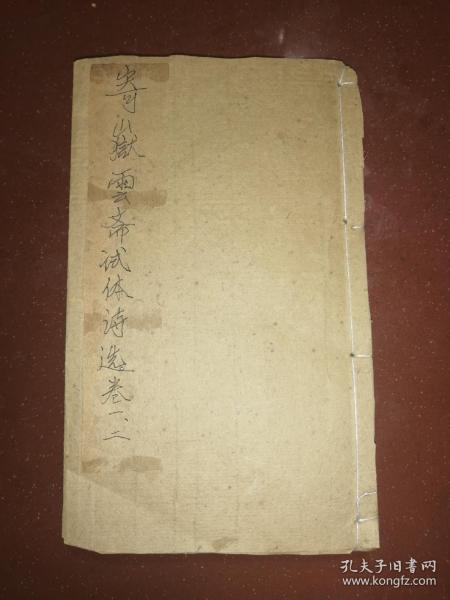 寄嶽雲齋试体诗选卷一、二
孔夫子旧书网
www.kongfz.com